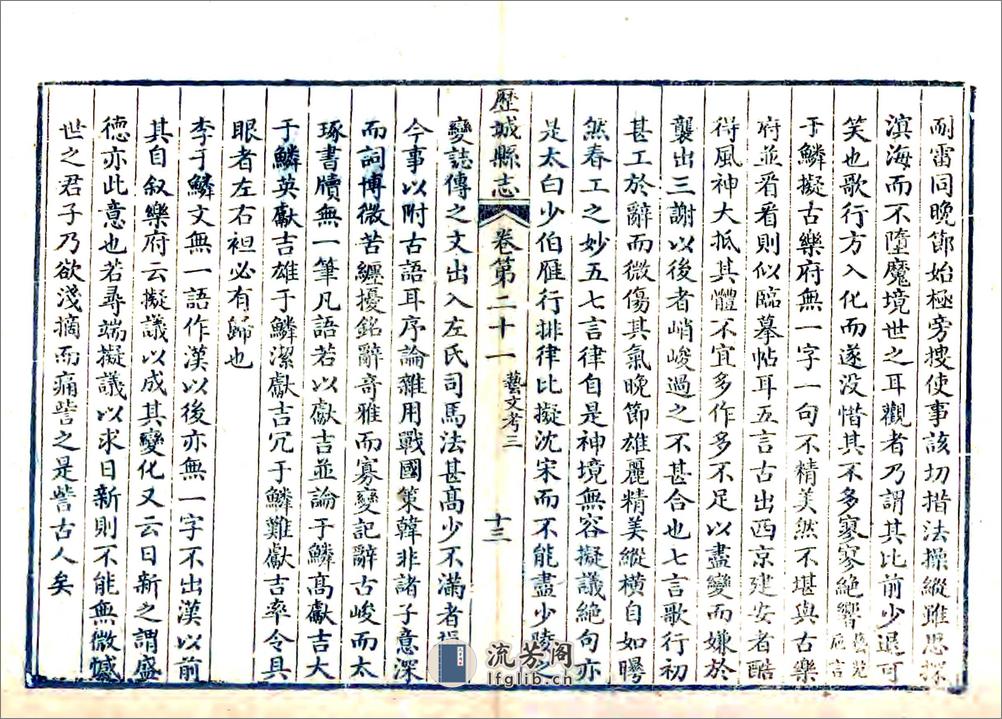 耐雷同晚節始極旁搜使事該切措法操縱雖思探
滇海而不墮魔境世之耳觀者乃謂其比前少退可
笑也歌行方入化而遂没惜其不多寥寥絶響藝苑卮言
于鱗擬古樂府無一字一句不精美然不堪與古樂
府並看看則似臨摹帖耳五言古出西京建安者酷
得風神大抵其體不宜多作多不足以盡變而嫌於
襲出三謝以後者峭峻過之不甚合也七言歌行初
甚工於辭而微傷其氣晚節雄麗精美縱橫自如曄
然春工之妙五七言律自是神境無容擬議絶句亦
是太白少伯雁行排律比擬沈宋而不能盡少陵之
歷城縣志 卷第二十一 藝文考三 十三
變誌傳之文出入左氏司馬法甚高少不滿者損
今事以附古語耳序論雜用戰國策韓非諸子意深
而詞博微苦纏擾銘辭奇雅而寡變記辭古峻而太
琢書牘無一筆凡語若以獻吉並論于鱗高獻吉大
于鱗英獻吉雄于鱗潔獻吉冗于鱗難獻吉率令具
眼者左右袒必有歸也
李于鱗文無一語作漢以後亦無一字不出漢以前
其自叙樂府云擬議以成其變化又云日新之謂盛
德亦此意也若尋端擬議以求日新則不能無微憾
世之君子乃欲淺摘而痛訾之是訾古人矣
流芳阁
lfglib.cn